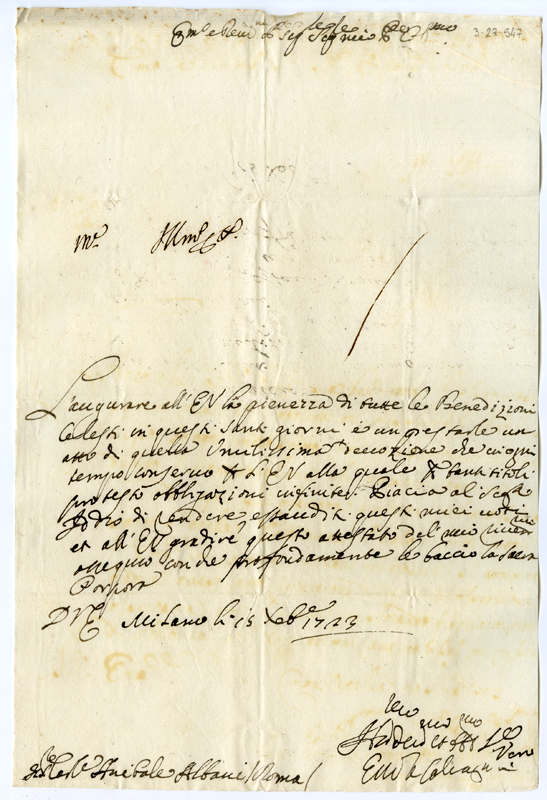 Em.mo e Rev.mo Sig.r Sig.r P.ron Col.mo
3-23-547
L'augurare all'EV la pienezza di tutte le Benedizioni
Celesti in questi Santi giorni è un prestarle un
atto di quella Umilissima devozione che in ogni
tempo conservo p L'EV alla quale p tanti titoli
protesto obbligazioni infinite. Piaccia al Sig.re
Iddio di rendere essauditi questi miei voti
et all'EV gradire questo attestato del mio
ossequio con che profondamente le baccio la Sacra
Porpora
D VE Milano li 15 Xbre 1723
Annibale Albani Roma